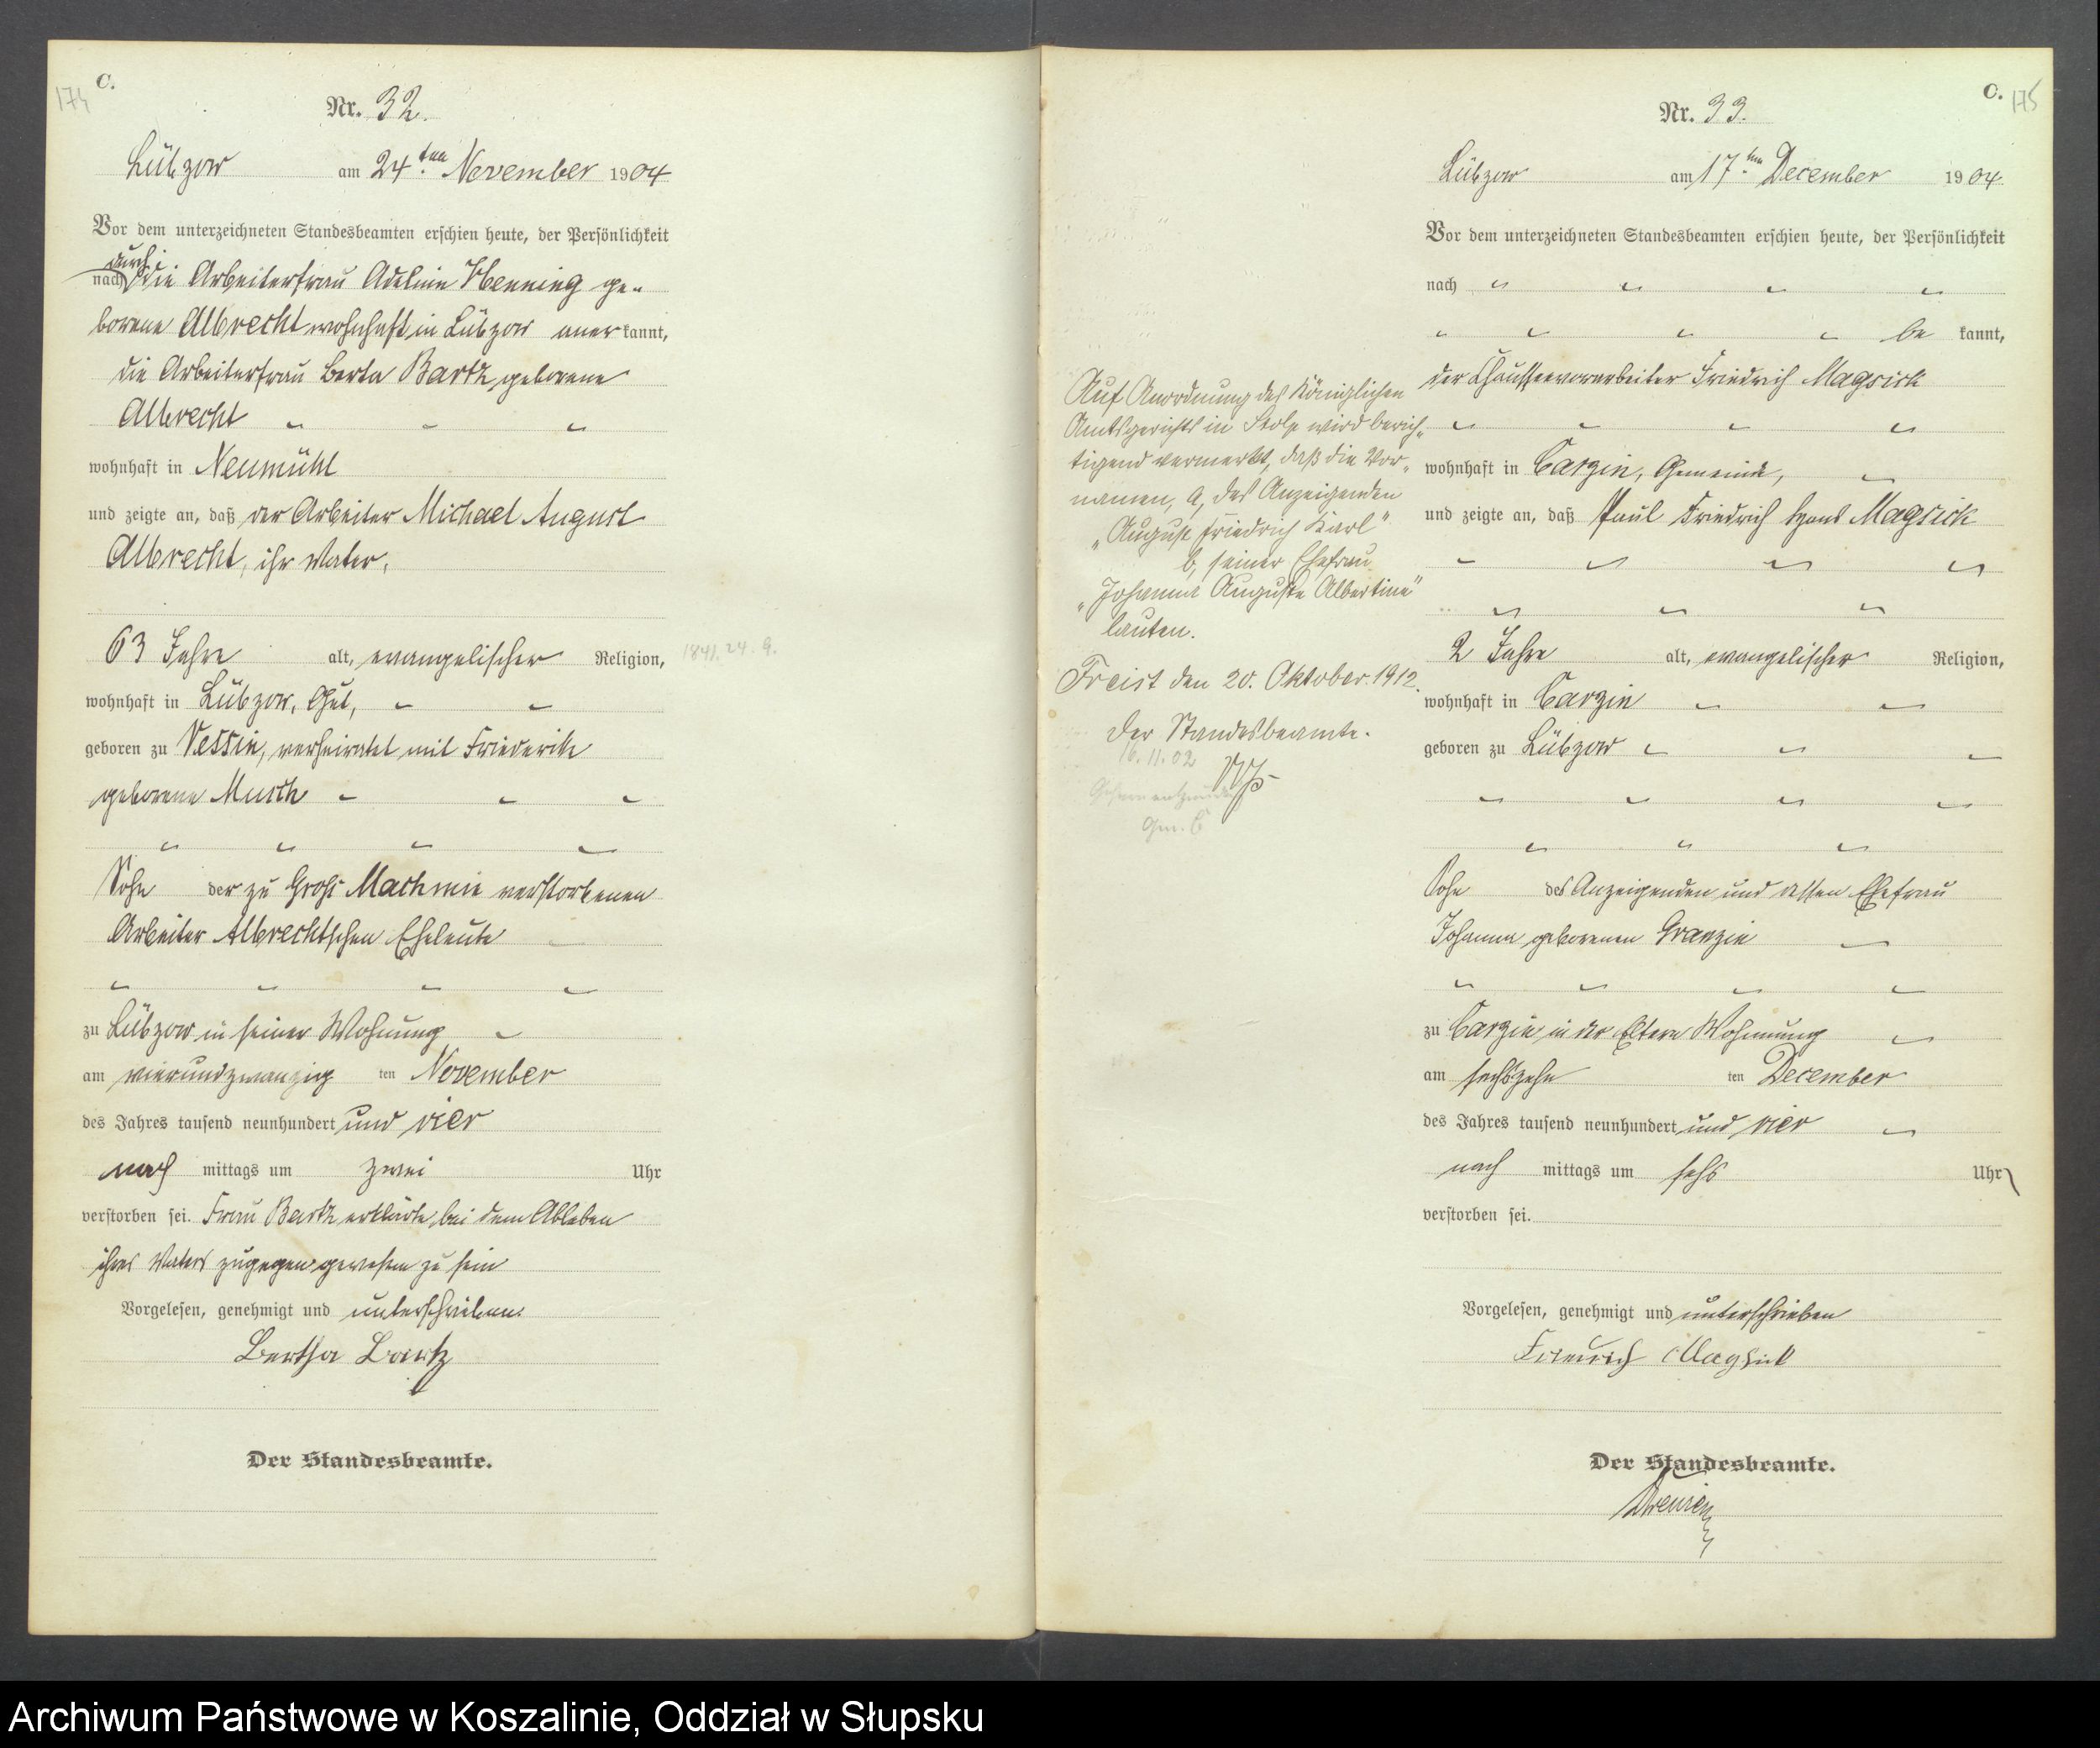 174
C.
Nr. 32.
Lübzow am 24ten November 1904
Vor dem unterzeichneten Standesbeamten erschien heute, der Persönlichkeit
durch
nach die Arbeiterfrau Adeline Henning ge-
borene Albrecht wohnhaft in Lübzow anerkannt,
die Arbeiterfrau Berta Bartz, geborene
Albrecht
wohnhaft in Neumühl
und zeigte an, daß der Arbeiter Michael August
Albrecht, ihr Vater,
63 Jahre alt, evangelischer Religion,
1841. 24. 9.
wohnhaft in Lübzow, Gut,
geboren zu Vessin, verheiratet mit Friederike
geborene Musch
Sohn der zu Groß Machmin verstorbenen
Arbeiter Albrechtschen Eheleute
zu Lübzow in seiner Wohnung
am vierundzwanzig ten November
des Jahres tausend neunhundert und vier
nach mittags um zwei Uhr
verstorben sei. Frau Bartz erklärte, bei dem Ableben
ihres Vaters zugegen gewesen zu sein
Vorgelesen, genehmigt und unterschrieben.
Bertha Bartz
Der Standesbeamte.
C.
175
Nr. 33.
Lübzow am 17ten December 1904
Vor dem unterzeichneten Standesbeamten erschien heute, der Persönlichkeit
nach
be kannt,
der Chausseevorarbeiter Friedrich Magsick
wohnhaft in Carzin, Gemeinde,
und zeigte an, daß Paul Friedrich Magsick
2 Jahre alt, evangelischer Religion,
wohnhaft in Carzin
geboren zu Lübzow
Sohn des Anzeigenden und dessen Ehefrau
Johanna geborenen Granzin
zu Carzin, in der Eltern Wohnung
am sechszehn ten December
des Jahres tausend neunhundert und vier
nach mittags um sechs Uhr
verstorben sei.
Vorgelesen, genehmigt und unterschrieben
Friedrich Magsick
Der Standesbeamte.
Auf Anordnung des Königlichen
Amtsgerichts in Stolp wird berich-
tigend vermerkt, daß die Vor-
namen, a, des Anzeigenden
„August Friedrich Karl"
b, seiner Ehefrau
„Johanna Auguste Albertine"
lauten.
Freist den 20. Oktober 1912.
Der Standesbeamte.
16.11.02
Archiwum Państwowe w Koszalinie, Oddział w Słupsku